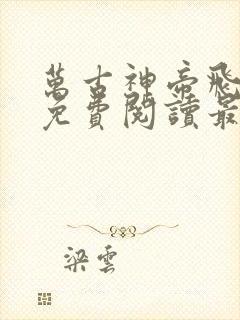 萬古神帝飛
免費閱讀最
梁雲